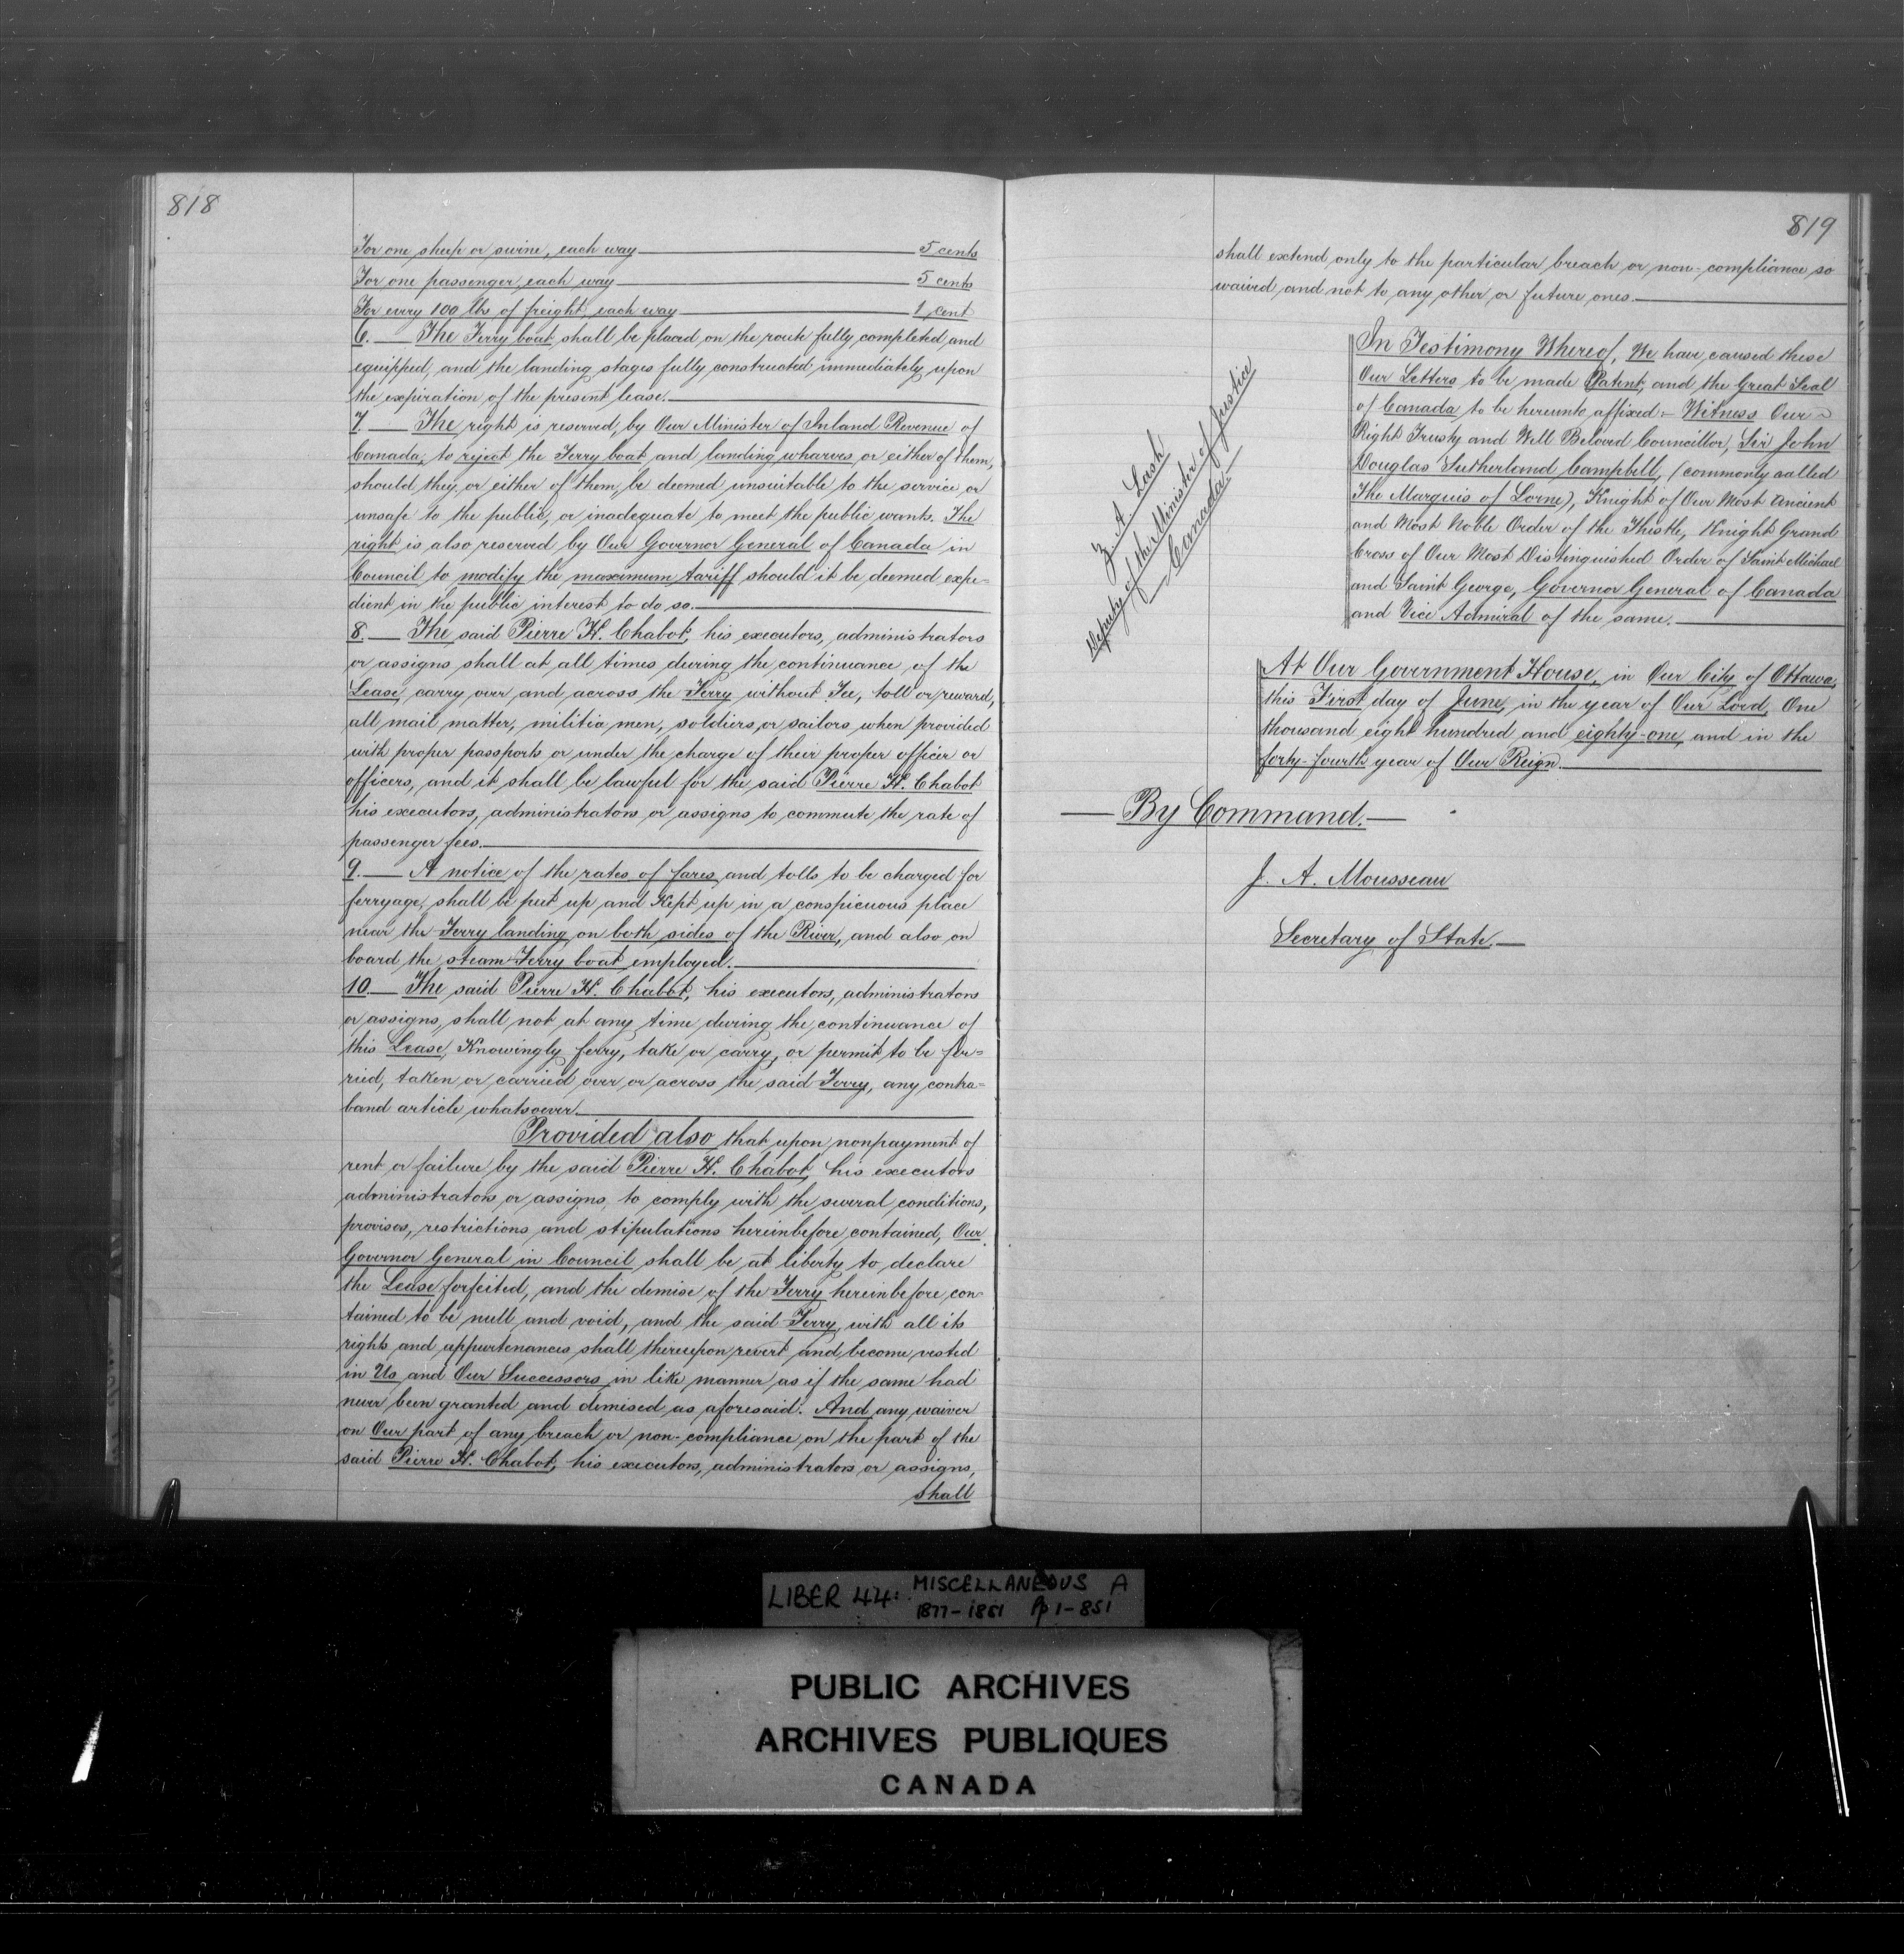 818
For one sheep or swine, each way 5 cents
For one passenger, each way 5 cents
For every 100 lbs of freight, each way 1 cent
6. The Ferry boat shall be placed on the route fully completed and
equipped, and the landing stages fully constructed immediately upon
the expiration of the present lease.
7. The right is reserved, by Our Minister of Inland Revenue of
Canada, to reject the Ferry boat and landing wharves, or either of them,
should they, or either of them, be deemed unsuitable to the service or
unsafe to the public, or inadequate to meet the public wants. The
right is also reserved by Our Governor General of Canada in
Council to modify the maximum tariff should it be deemed expe-
dient in the public interest to do so.
8. The said Pierre H. Chabot, his executors, administrators
or assigns shall at all times during the continuance of the
Lease, carry over and across the Ferry without Fee, toll or reward,
all mail matter, militia men, soldiers, or sailors, when provided
with proper passports or under the charge of their proper officer or
officers, and it shall be lawful for the said Pierre H. Chabot
his executors, administrators or assigns to commute the rate of
passenger fees.
9. A notice of the rates of fares and tolls to be charged for
ferryage, shall be put up and Kept up in a conspicuous place
near the Ferry landing on both sides of the River, and also on
board the steam Ferry boat employed.
10. The said Pierre H. Chabot, his executors, administrators
or assigns, shall not at any time during the continuance of
this Lease, Knowingly ferry, take or carry, or permit to be fer-
ried, taken or carried over or across the said Ferry, any contra-
band article whatsoever.
Provided also that upon nonpayment of
rent or failure by the said Pierre H. Chabot, his executors
administrators or assigns, to comply with the several conditions,
provisos, restrictions and stipulations hereinbefore contained, Our
Governor General in Council shall be at liberty to declare
the Lease forfeited, and the demise of the Ferry hereinbefore con-
tained to be null and void, and the said Ferry, with all its
rights and appurtenances shall thereupon revert and become vested
in Us and Our Successors in like manner as if the same had
never been granted and demised as aforesaid. And any waiver
on Our part of any breach or non-compliance on the part of the
said Pierre H. Chabot, his executors, administrators or assigns,
shall
819
shall extend only to the particular breach or non-compliance so
waived, and not to any other or future ones.
Z. A. Lash
Deputy of the Minister of Justice
Canada.
In Testimony Whereof, We have caused these
Our Letters to be made Patent, and the Great Seal
of Canada to be hereunto affixed:- Witness Our
Right Trusty and Well Beloved Councillor, Sir John
Douglas Sutherland Campbell, (commonly called
The Marquis of Lorne), Knight of Our Most Ancient
and Most Noble Order of the Thistle, Knight Grand
Cross of Our Most Distinguished Order of Saint Michael
and Saint George, Governor General of Canada
and Vice Admiral of the same.
At Our Government House, in Our City of Ottawa,
this First day of June, in the year of Our Lord, One
thousand eight hundred and eighty-one, and in the
forty-fourth year of Our Reign.
By Command.
J. A. Mousseau
Secretary of State.
LIBER 44: MISCELLANEOUS A
1877-1881 Pp 1-851
PUBLIC ARCHIVES
ARCHIVES PUBLIQUES
CANADA